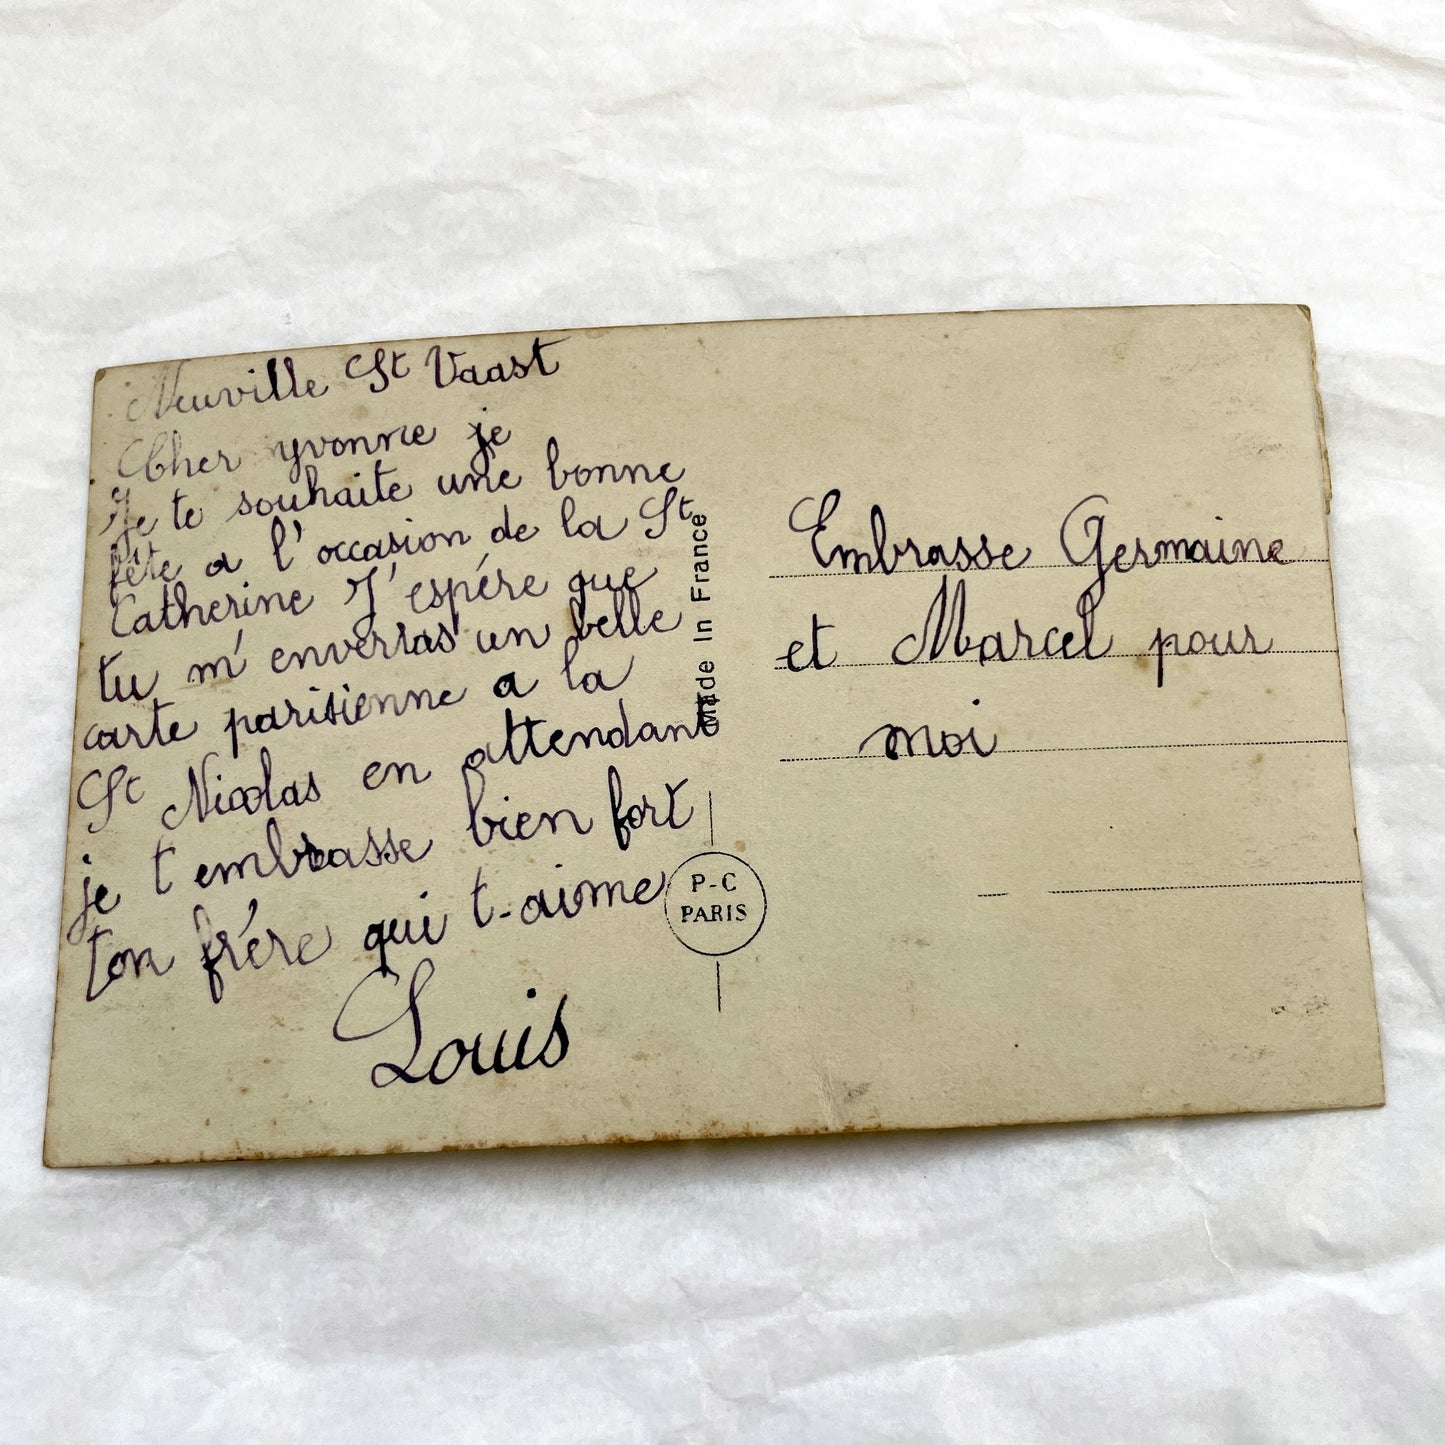 Neuville St Vaast
Cher yvonne je
Je te souhaite une bonne
fête a l'occasion de la St
Catherine J'espére que
tu m'enverras un belle
carte parisienne a la
St Nicolas en attendant
je t'embrasse bien fort
ton frére qui t-aime
Louis
Made In France
P-C
PARIS
Embrasse Germaine
et Marcel pour
moi